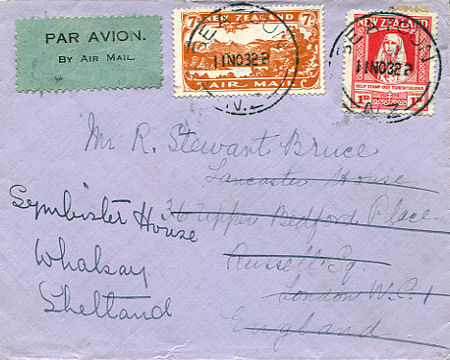 PAR AVION.
BY AIR MAIL.
7D NEW ZEALAND 7D
AIR MAIL
11 NO 32
N.Z.
NEW ZEALAND
HELP STAMP OUT TUBERCULOSIS
1D 1D
11 NO 32
N.Z.
Mr R. Stewart Bruce
Lancaster House
36 Upper Bedford Place
Russell Sq.
London W.C.1
England
Symbister House
Whalsay
Shetland